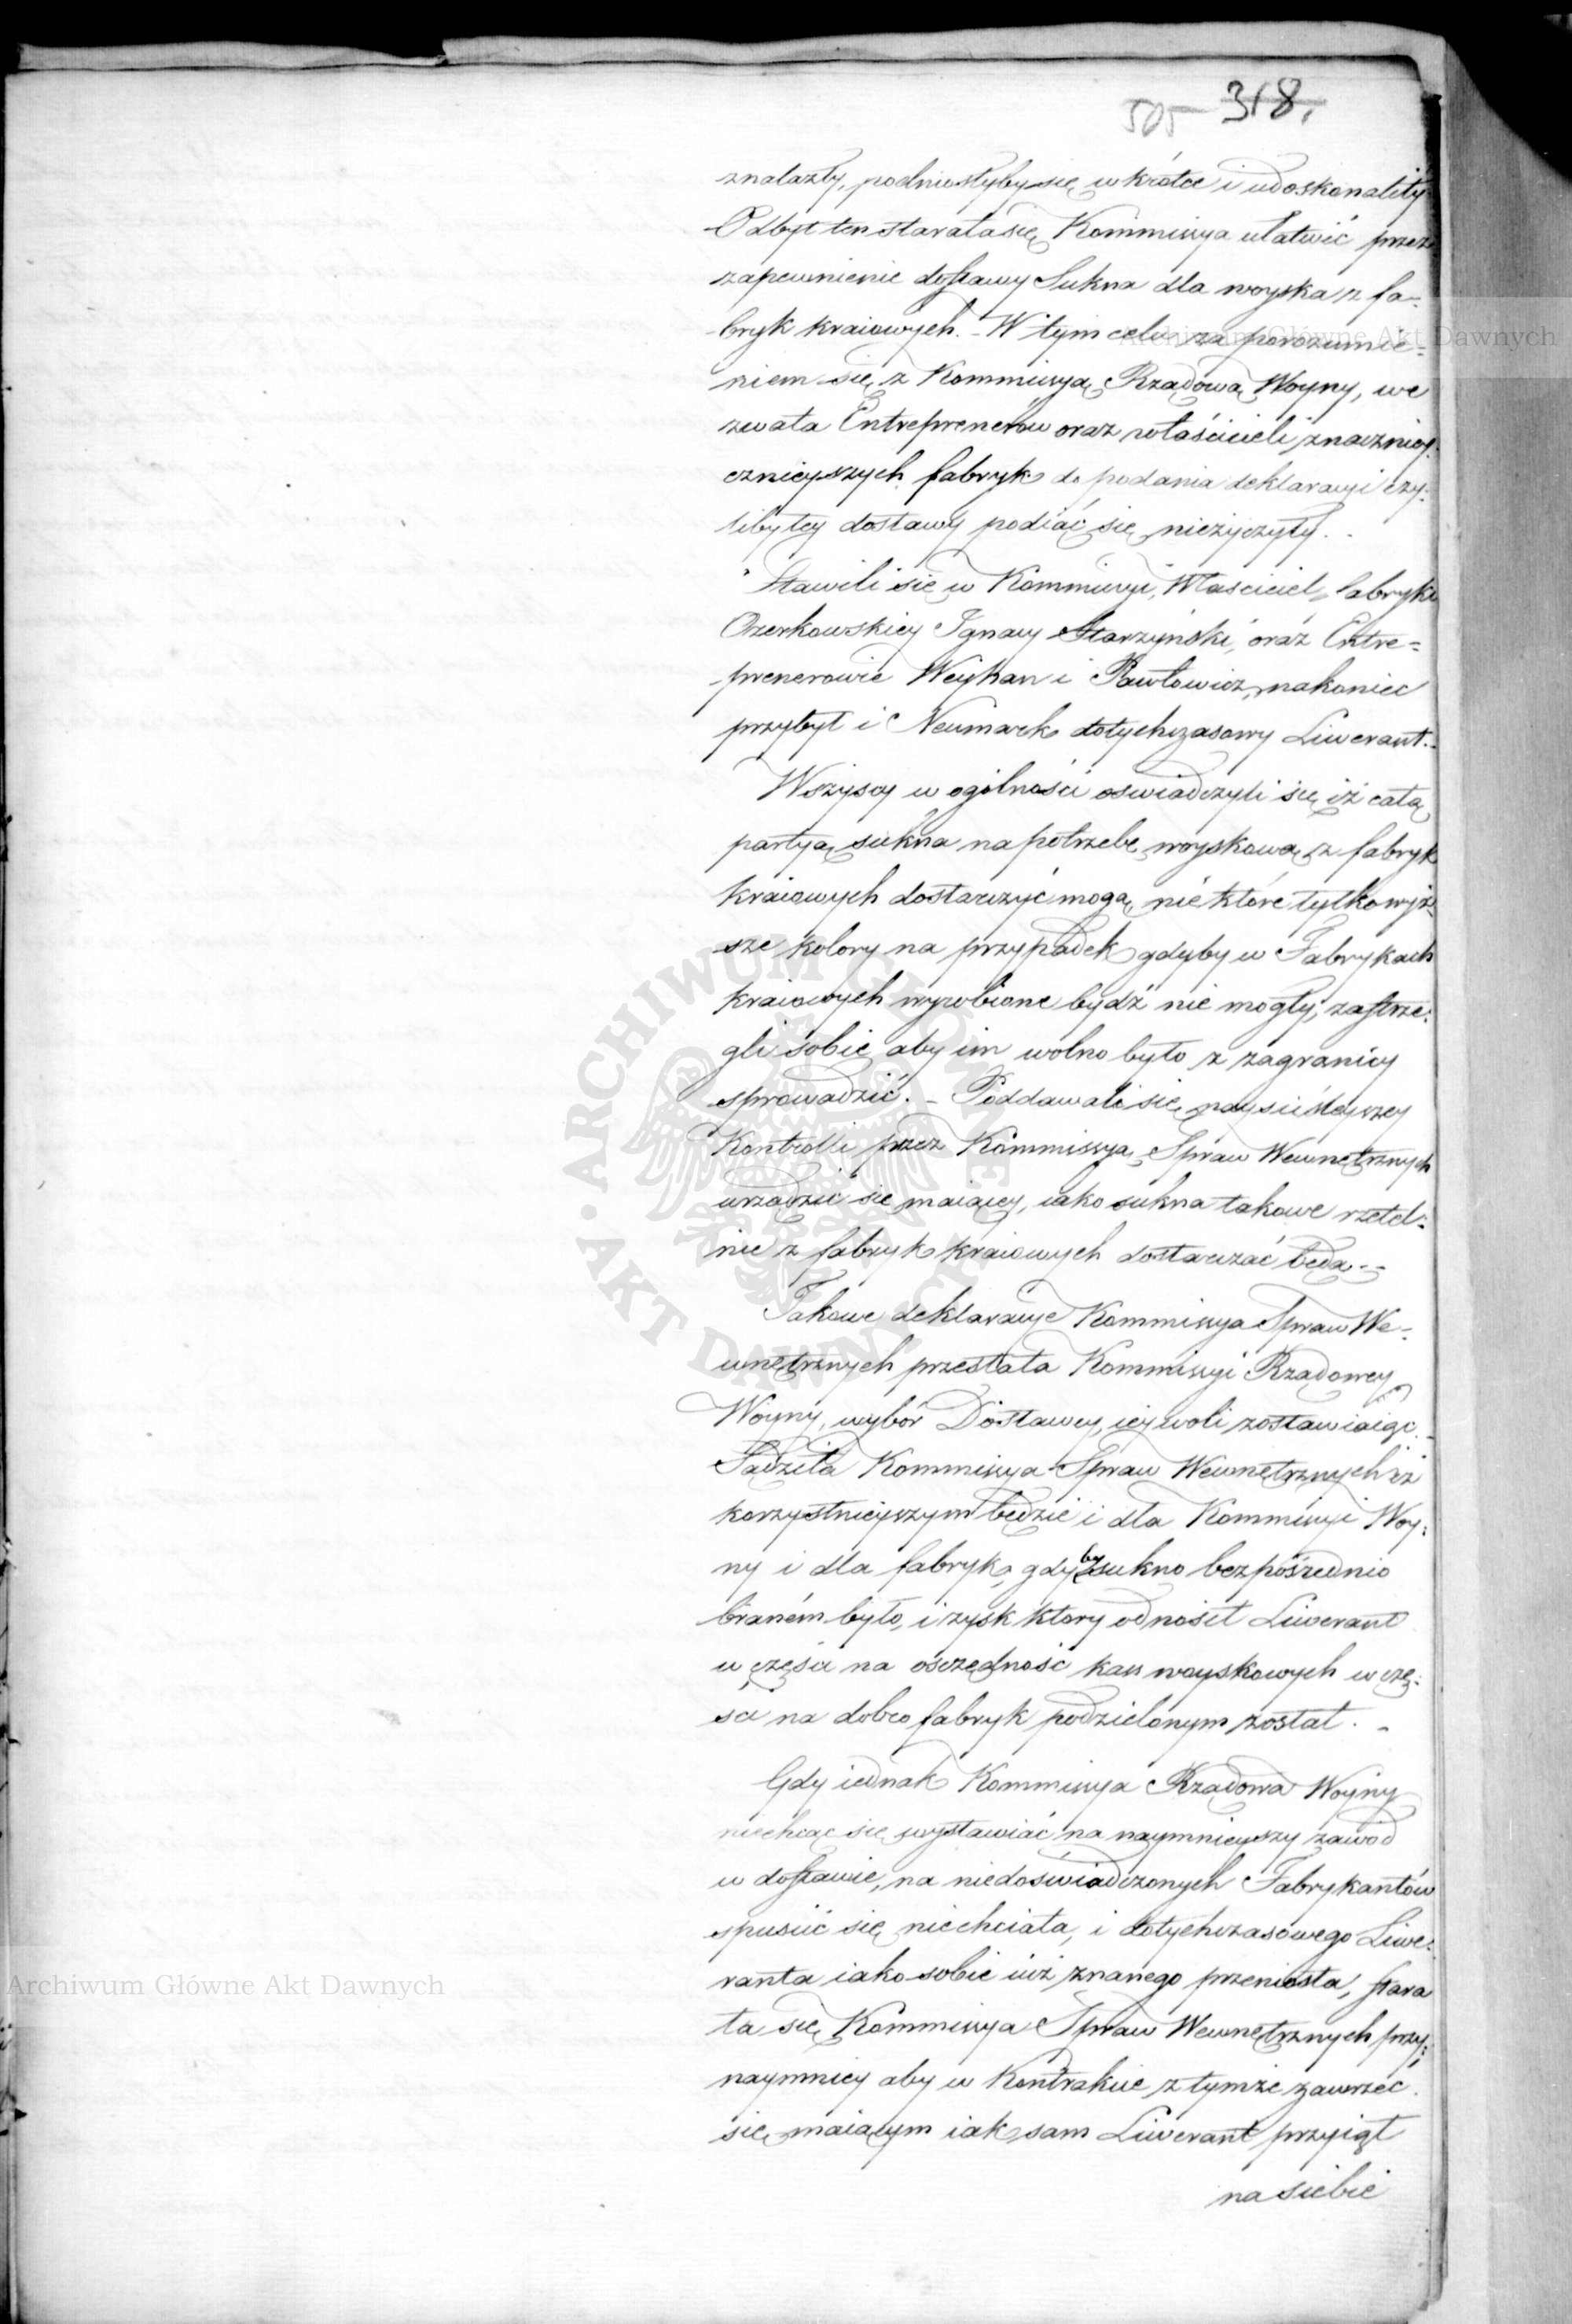 505 318.
znalazły, podniosłyby się wkrótce i udoskonaliły
Odbyt ten starała się Kommissya ułatwić przez
zapewnienie dostawy Sukna dla woyska z fa-
bryk kraiowych. - W tym celu za porozumie-
niem się z Kommissyą Rządową Woyny, we
zwała Entreprenerów oraz właścicieli znaczniey
cznieyszych fabryk do podania deklaracyi czy-
liby tey dostawy podiąć się nieżyczyły. -
Stawili się w Kommissyi, Właściciel fabryki
Ozerkowskiey Ignacy Starzyński, oraz Entre=
prenerowie Weyhan i Pawłowicz, nakoniec
przybył i Neumark dotychczasowy Liwerant. -
Wszyscy w ogólności oswiadczyli się iż całą
partyą sukna na potrzebę woyskową z fabryk
kraiowych dostarczyć mogą, nie które tylko wyż-
sze kolory na przypadek gdyby w Fabrykach
kraiowych wyrobione bydź nie mogły, zastrze-
gli sobie aby im wolno było z zagranicy
sprowadzić. - Poddawali się nayściśleyszey
Kontrolli przez Kommissyą Spraw Wewnętrznych
urządzić się maiącey, iako sukna takowe rzetel-
nie z fabryk kraiowych dostarczać będą. -
Takowe deklaracye Kommissya Spraw We-
wnętrznych przesłała Kommissyi Rządowey
Woyny, wybór Dostawcy, iey woli zostawiaiąc. -
Sądziła Kommissya Spraw Wewnętrznych iż
korzystnieyszym będzie i dla Kommissyi Woy-
ny i dla fabryk, gdyby sukno bezpośrednio
braném było, i zysk który odnosił Liwerant
w części na osczędność kass woyskowych w czę-
ści na dobro fabryk podzielonym został. -
Gdy iednak Kommissya Rządowa Woyny
niechcąc się wystawiać na naymnieyszy zawód
w dostawie, na niedoświadczonych Fabrykantów
spuścić się niechciała, i dotychczasowego Liwe-
ranta iako sobie iuż znanego przeniosła, stara
ła się Kommissya Spraw Wewnętrznych przy-
naymniey aby w Kontrakcie z tymże zawrzeć
się maiącym iak sam Liwerant przyiął
na siebie
Archiwum Główne Akt Dawnych
Archiwum Główne Akt Dawnych
ARCHIWUM GŁÓWNE AKT DAWNYCH